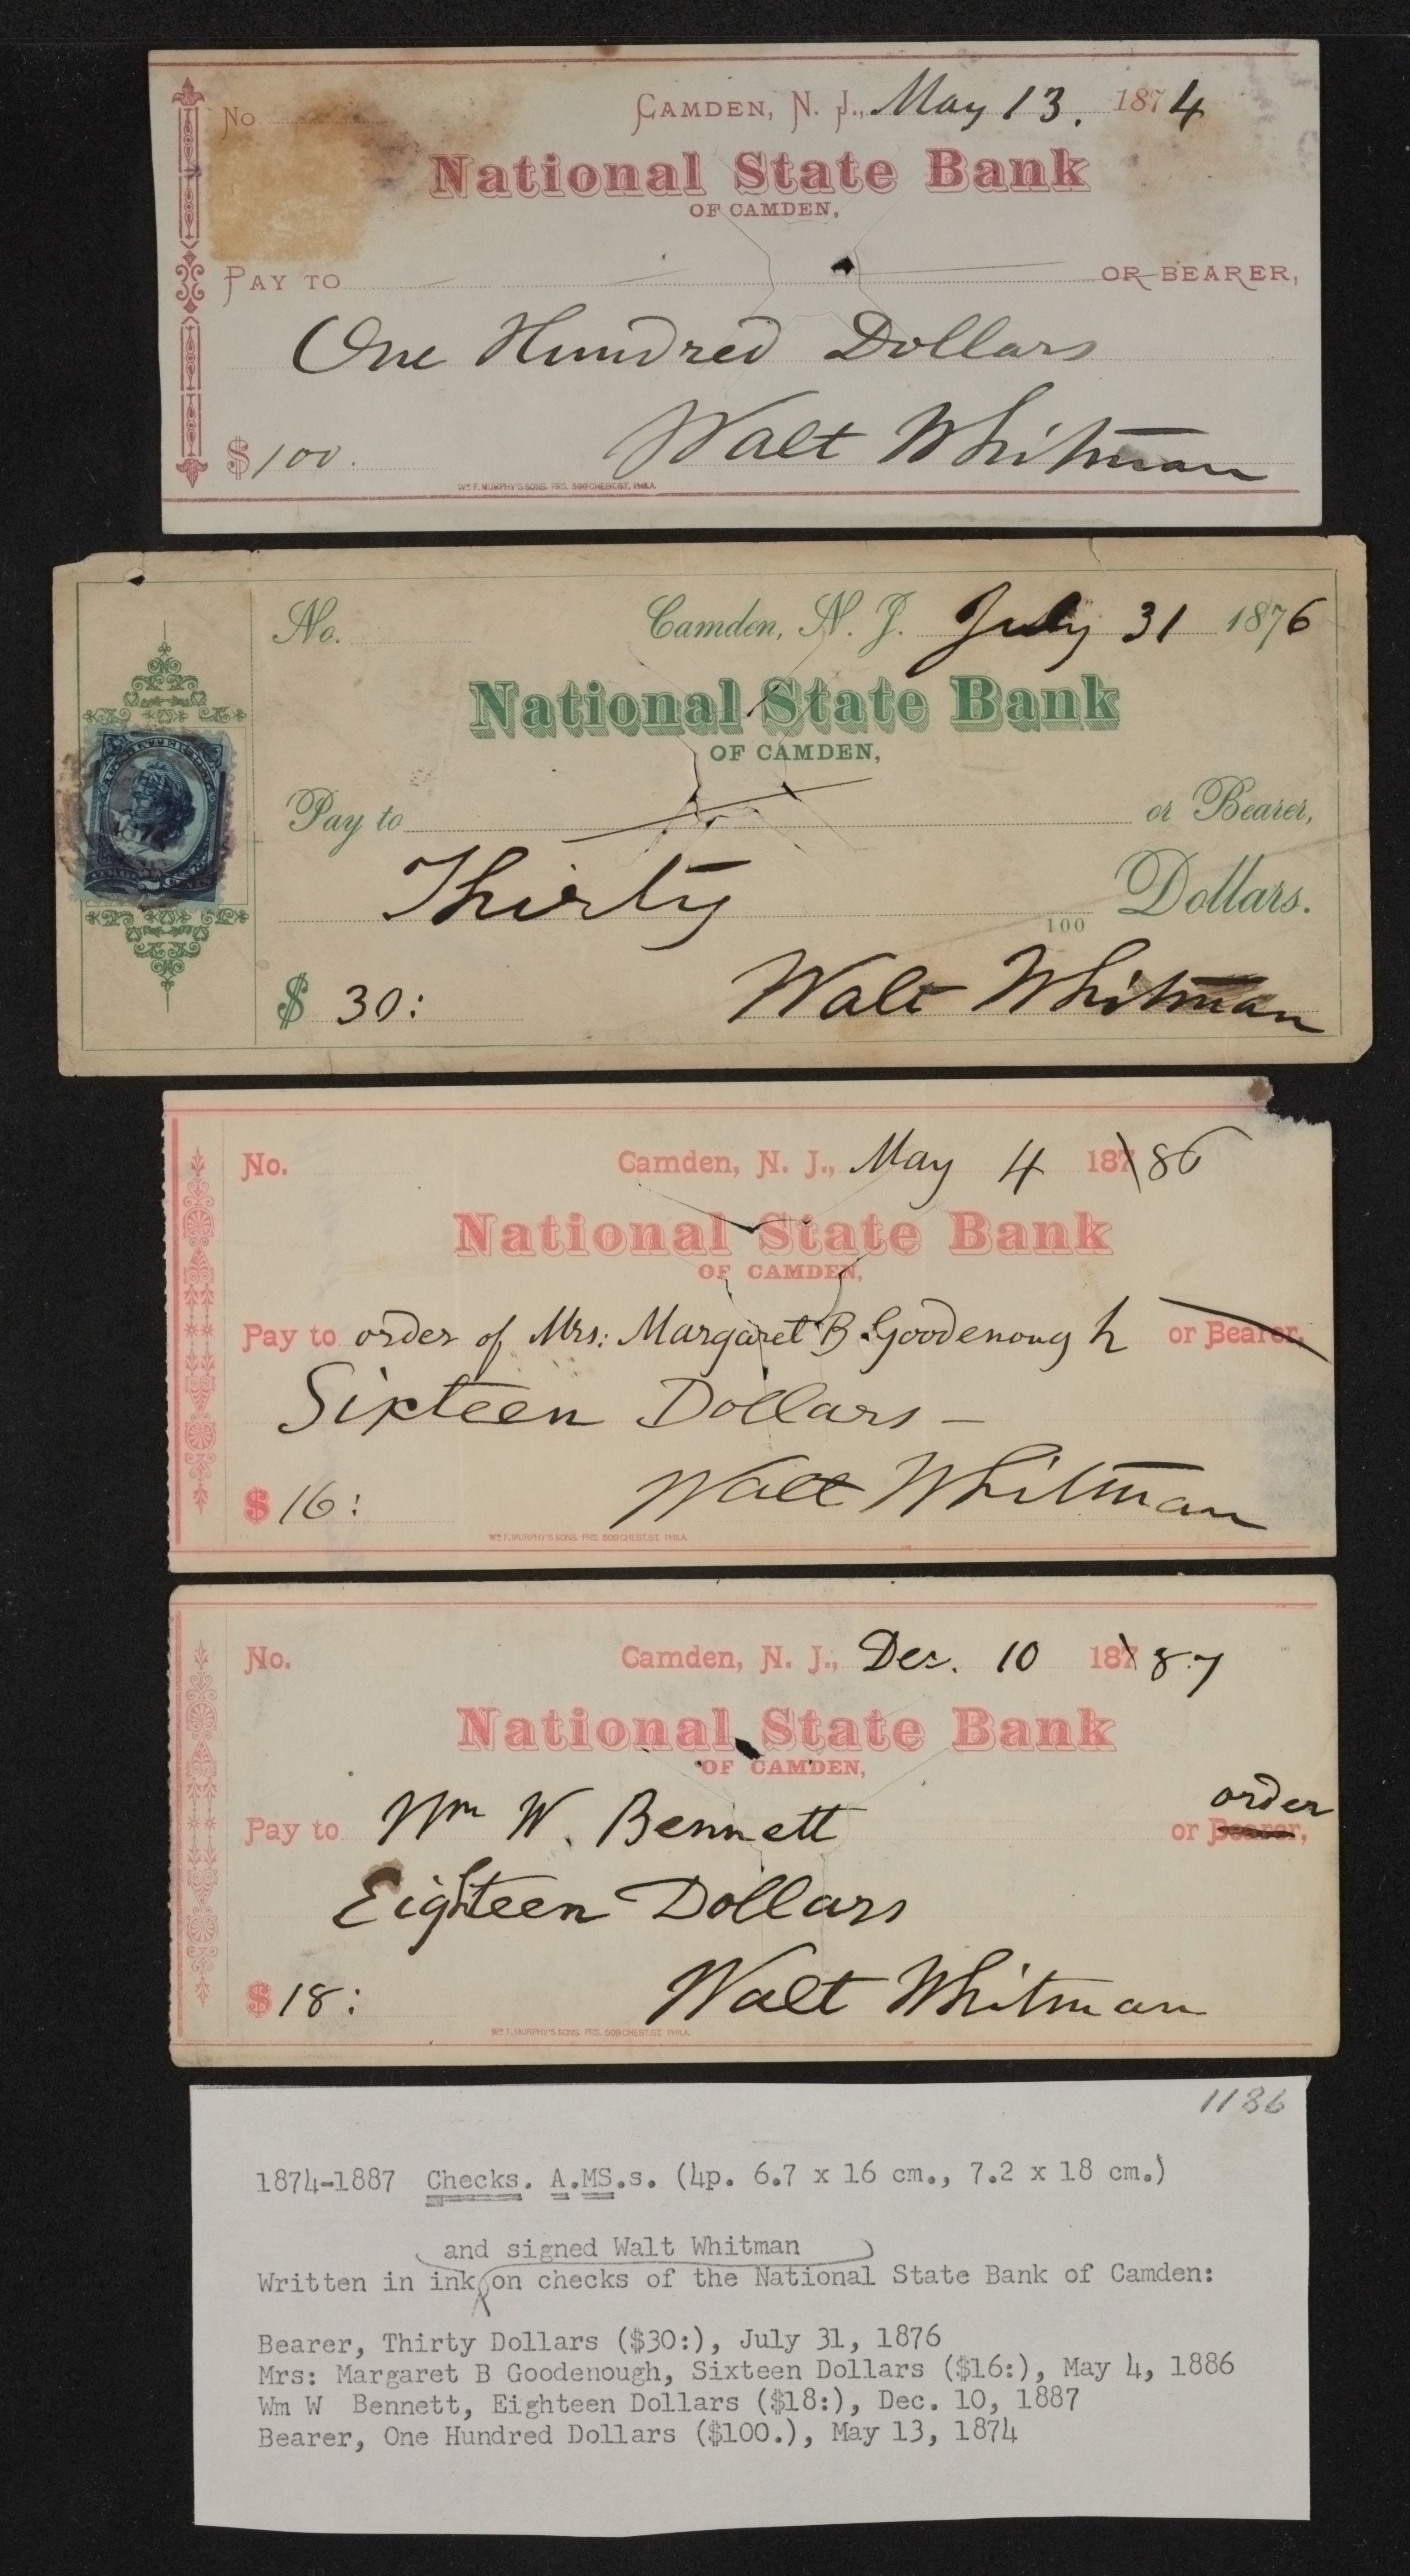 No CAMDEN, N. J., May 13. 1874
National State Bank
OF CAMDEN,
PAY TO OR BEARER,
One Hundred Dollars
$100. Walt Whitman
Wm F. MURPHY'S SONS. PRS. 509 CHEST. ST. PHILA.
No. Camden, N. J. July 31 1876
National State Bank
OF CAMDEN,
Pay to or Bearer,
Thirty 100 Dollars.
$ 30: Walt Whitman
No. Camden, N. J., May 4 187 86
National State Bank
OF CAMDEN,
Pay to order of Mrs: Margaret B Goodenough or Bearer,
Sixteen Dollars —
$ 16: Walt Whitman
Wm F. MURPHY'S SONS. PRS. 509 CHEST. ST. PHILA.
No. Camden, N. J., Dec. 10 187 87
National State Bank
OF CAMDEN,
order
Pay to Wm W. Bennett or Bearer,
Eighteen Dollars
$ 18: Walt Whitman
Wm F. MURPHY'S SONS. PRS. 509 CHEST. ST. PHILA.
1186
1874-1887 Checks. A.MS.s. (4p. 6.7 x 16 cm., 7.2 x 18 cm.)
and signed Walt Whitman
Written in ink on checks of the National State Bank of Camden:
Bearer, Thirty Dollars ($30:), July 31, 1876
Mrs: Margaret B Goodenough, Sixteen Dollars ($16:), May 4, 1886
Wm W Bennett, Eighteen Dollars ($18:), Dec. 10, 1887
Bearer, One Hundred Dollars ($100.), May 13, 1874